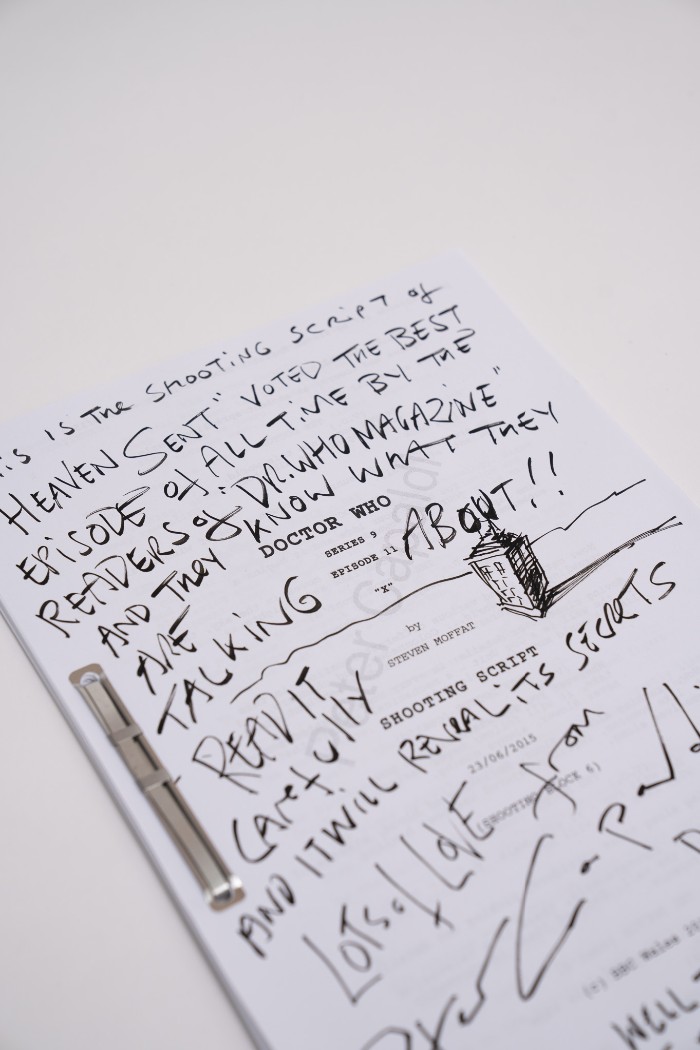 is is The SHOOTING SCRIPT of
HEAVEN SENT" VOTED THE BEST
EPISODE of ALL TIME BY THE
READERS of "DR.WHO MAGAZINE"
AND THEY KNOW WHAT THEY
ARE
TALKING ABOUT!!
DOCTOR WHO
SERIES 9
EPISODE 11
"X"
by
STEVEN MOFFAT
SHOOTING SCRIPT
23/06/2015
(SHOOTING BLOCK 6)
READ IT
CAREfully
AND IT WILL REVEAL ITS SECRETS
LOTS of LOVE from
Peter Capaldi
(c) BBC Wales 20
WELL
Peter Capaldi